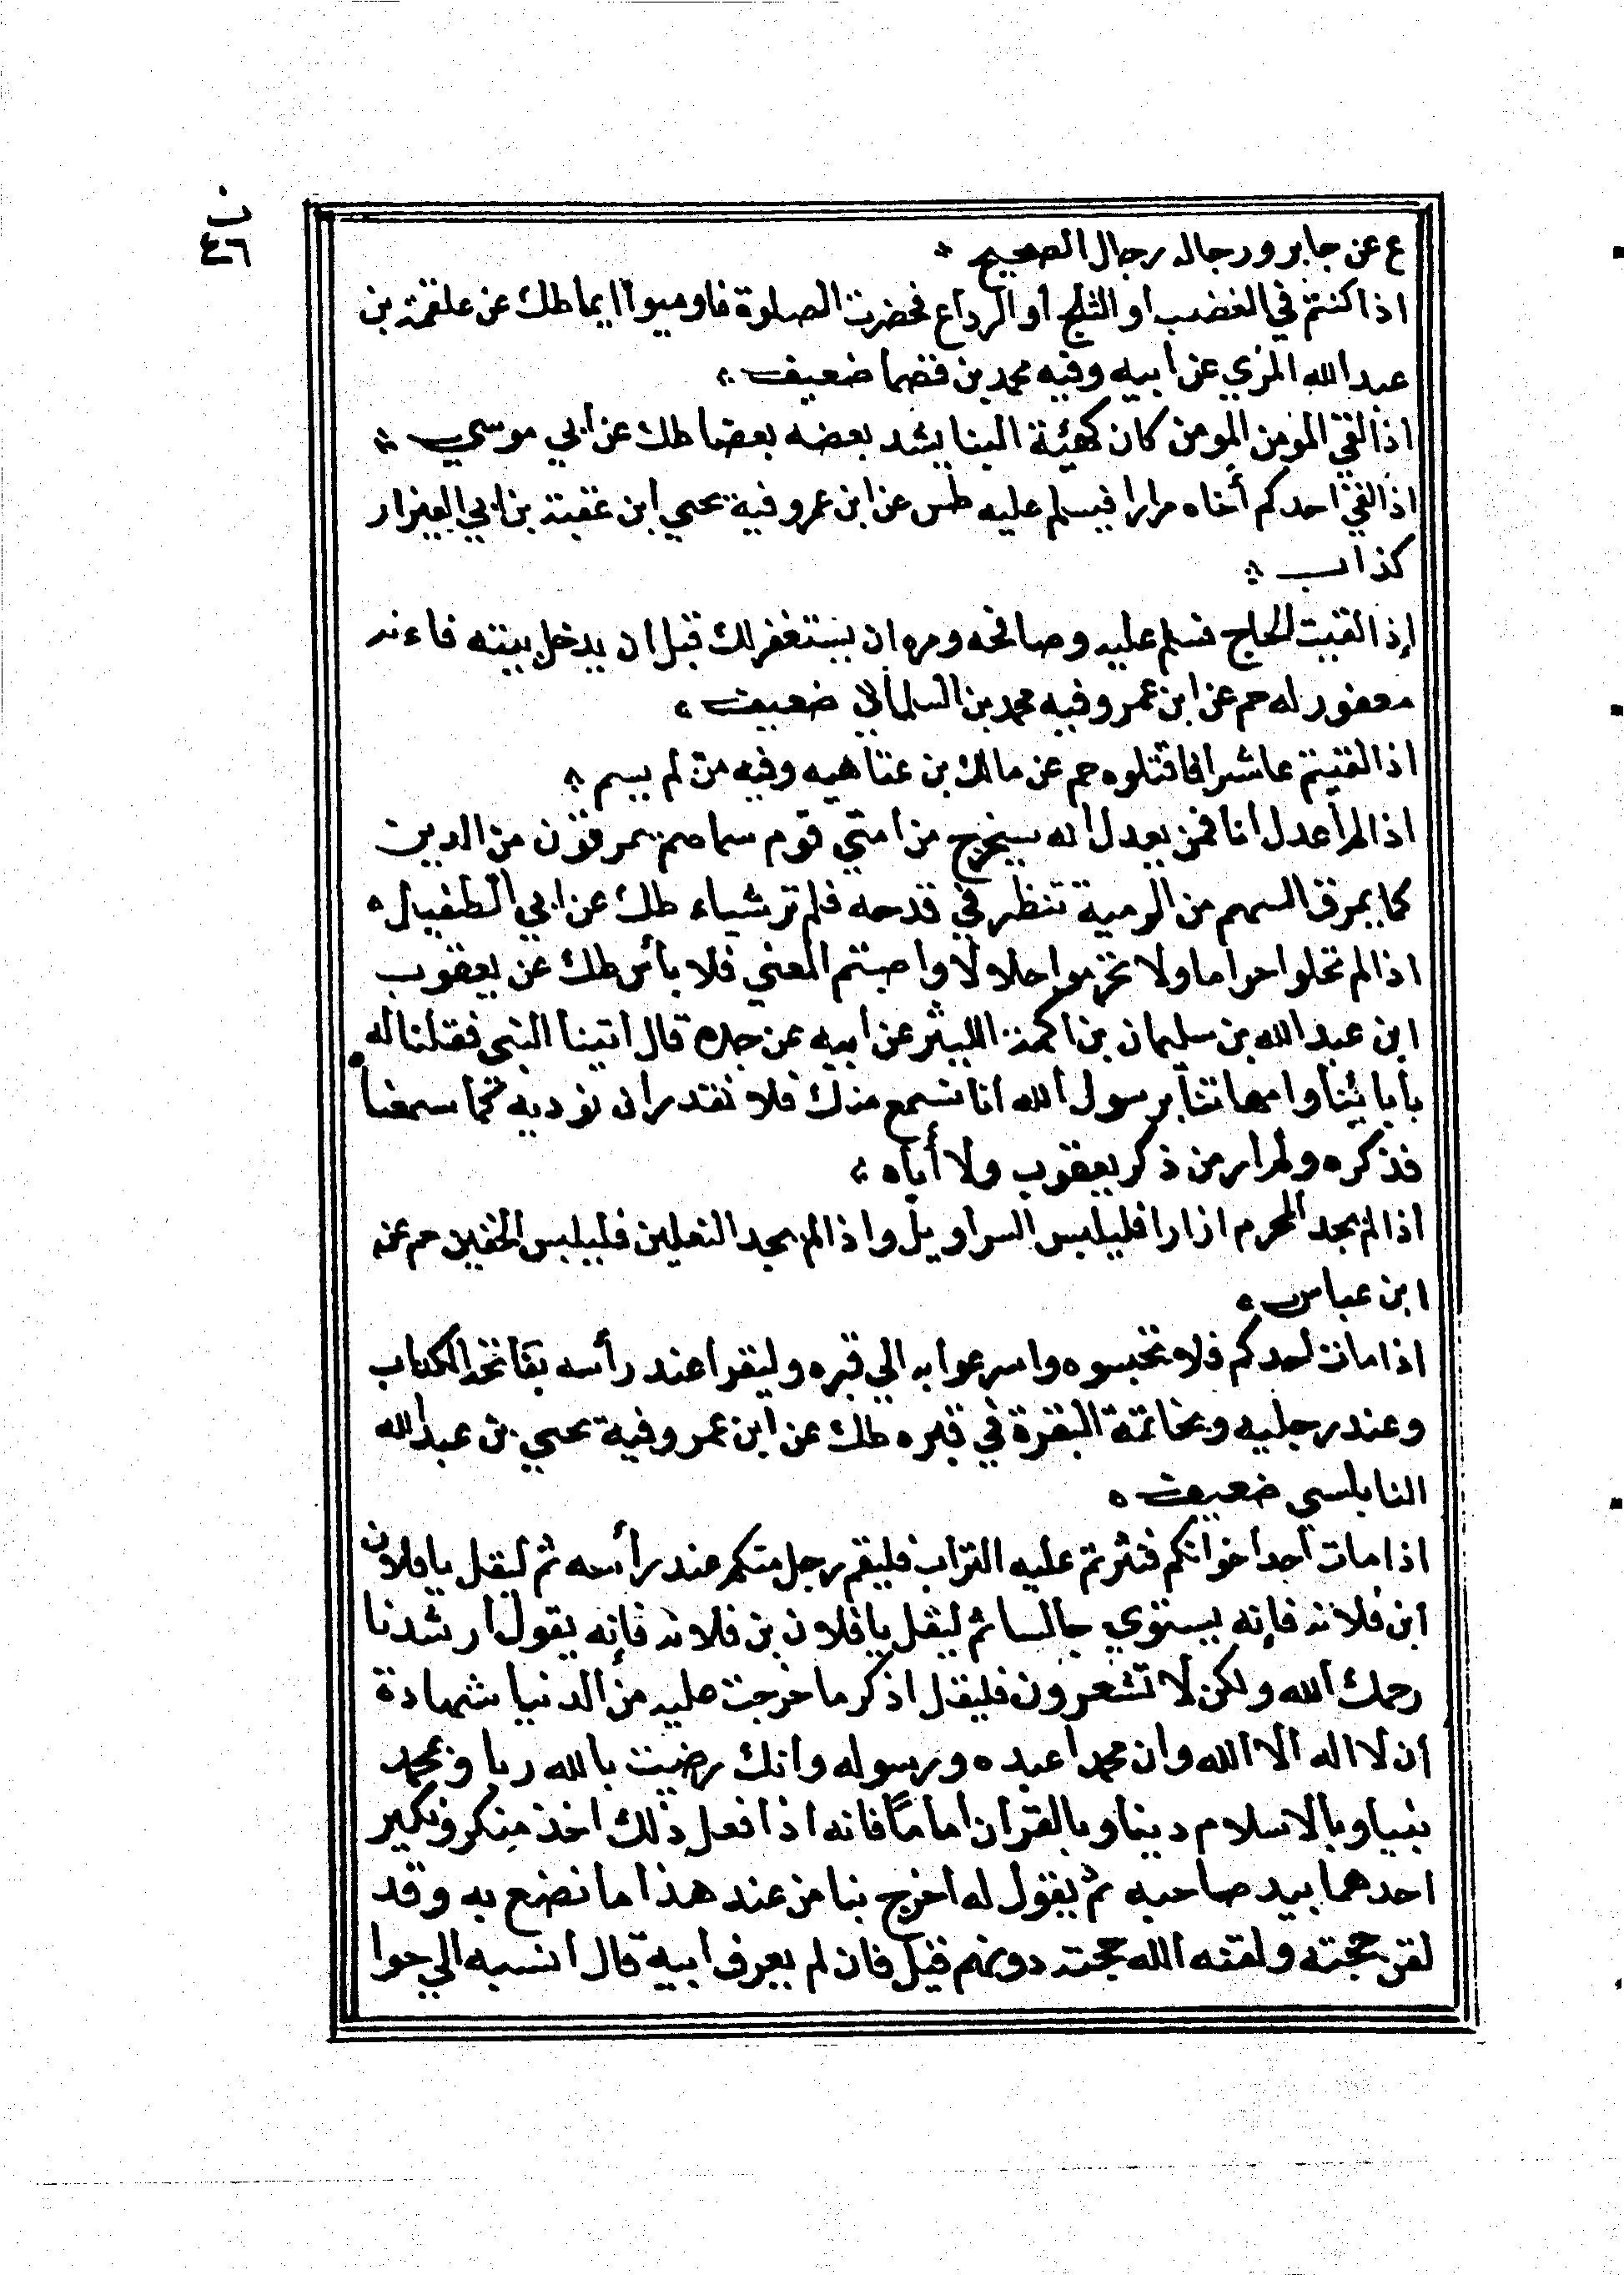 ن
٤٦
ع عن جابر ورجاله رجال الصحيح
اذا كنتم في الغضب او الثلج او الرداع فحضرت الصلوة فاوميوا ايما طك عن علقمة بن
عبد الله المزي عن ابيه وفيه محمد بن فضما ضعيف
اذا لقي المومن المومن كان كهيئة البنا يشد بعضه بعضا طك عن ابي موسي
اذا لقي احدكم أخاه مرارا فيسلم عليه طس عن ابن عمر وفية يحيي ابن عقبة بن ابي العيزار
كذاب
إذا لقيت الحاج فسلم عليه وصافحه ومره ان يستغفر لك قبل ان يدخل بيته فاءنه
معفور له حم عن ابن عمر وفيه محمد بن السلماني ضعيف
اذا لقيتم عاشرا فاقتلوه حم عن مالك بن عتاهيه وفيه من لم يسم
اذا لم أعدل انا فمن يعدل انه سيخرج من امتي قوم سماهم يمرقون من الدين
كما يمرق السهم من الرمية تنظر في قدحه فلم تر شياء طك عن ابي الطفيل
اذا لم تحلوا حراما ولا تحرموا حلالا لا واصبتم المعني فلا بأس طك عن يعقوب
ابن عبد الله بن سليمان بن اكمة الليثر عن ابيه عن جده قال اتينا النبى فقلنا له
بأبائينا وامهاتنا يرسول الله انا نسمع منك فلا نقدر ان نوديه كما سمعنا
فذكره ولم ار من ذكر يعقوب ولا أباه
اذا لم يجد المحرم ازارا فليلبس السراويل واذا لم يجد النعلين فليلبس الخفين حم عن
ابن عباس
اذا مات احدكم فلا تحبسوه واسرعوا به الي قبره وليقرا عند رأسه بفاتحة الكتاب
وعند رجليه وبخاتمة البقرة في قبره طك عن ابن عمر وفية يحيي بن عبد الله
النابلسي ضعيف
اذا مات احد اخوانكم فنثرتم عليه التراب فليقم رجل منكم عند رأسه ثم ليقل يا فلان
ابن فلانة فإنه يستوي جالسا ثم ليقل يا فلان بن فلانة فإنه يقول ارشدنا
رحمك الله ولكن لا تشعرون فليقل اذكر ما خرجت عليه من الدنيا شهادة
أن لا اله الا الله وان محمدا عبده ورسوله وانك رضيت بالله ربا وبمحمد
نبيا وبالاسلام دينا وبالقرآن اماماً فانه اذا فعل ذلك اخذ منكر ونكير
احدهما بيد صاحبه ثم يقول له اخرج بنا من عند هذا ما نصنع به وقد
لقن حجته ولقنه الله حجته دونهم قيل فان لم يعرف ابيه قال انسبه الي حوا